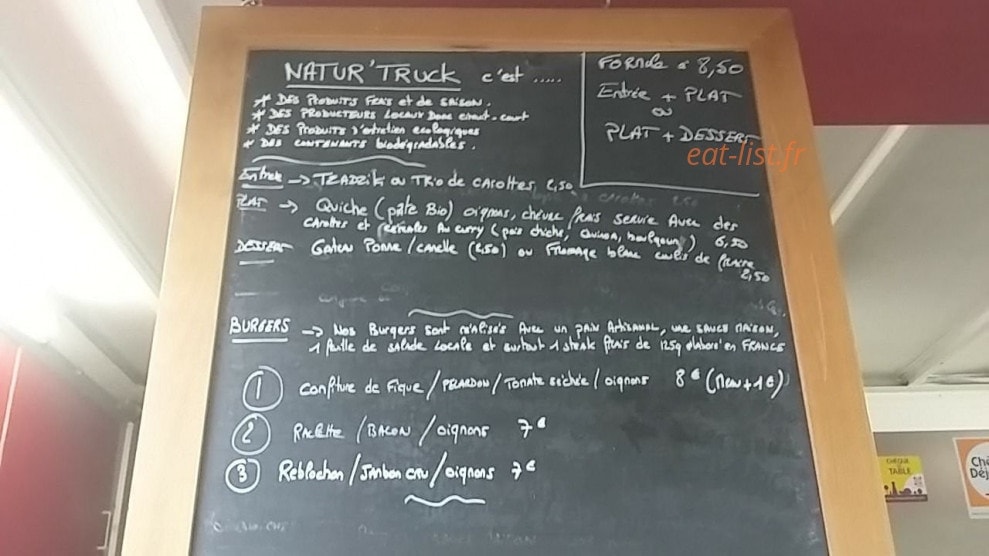 NATUR'TRUCK c'est .....
* DES PRODUITS FRAIS et de SAISON.
* DES PRODUCTEURS LOCAUX Donc circuit-court
* DES PRODUITS d'entretien ecologiques
* DES CONTENANTS biodégradables.
FORMULE = 8,50
Entrée + PLAT
ou
PLAT + DESSERT
eat-list.fr
Entrée → TZADZIK ou TRio de CAROTTES 2,50
PLAT → Quiche (pâte Bio) oignons, chèvre frais servie Avec des
carottes et céréales Au curry (pois chiche, Quinoa, boulgour) 6,50
DESSERT Gateau Pomme / canelle (2,50) ou Fromage blanc coulis de fraise
2,50
BURGERS → Nos Burgers sont réalisés Avec un pain Artisanal, une sauce maison,
1 feuille de salade locale et surtout 1 steak frais de 125g élaboré en FRANCE
1 Confiture de Figue / PELARDON / Tomate séchée / oignons 8€ (Menu + 1€)
2 Raclette / BACON / oignons 7€
3 Reblochon / Jambon cru / oignons 7€
CHÈQUE
DE
TABLE
Chè
Déj